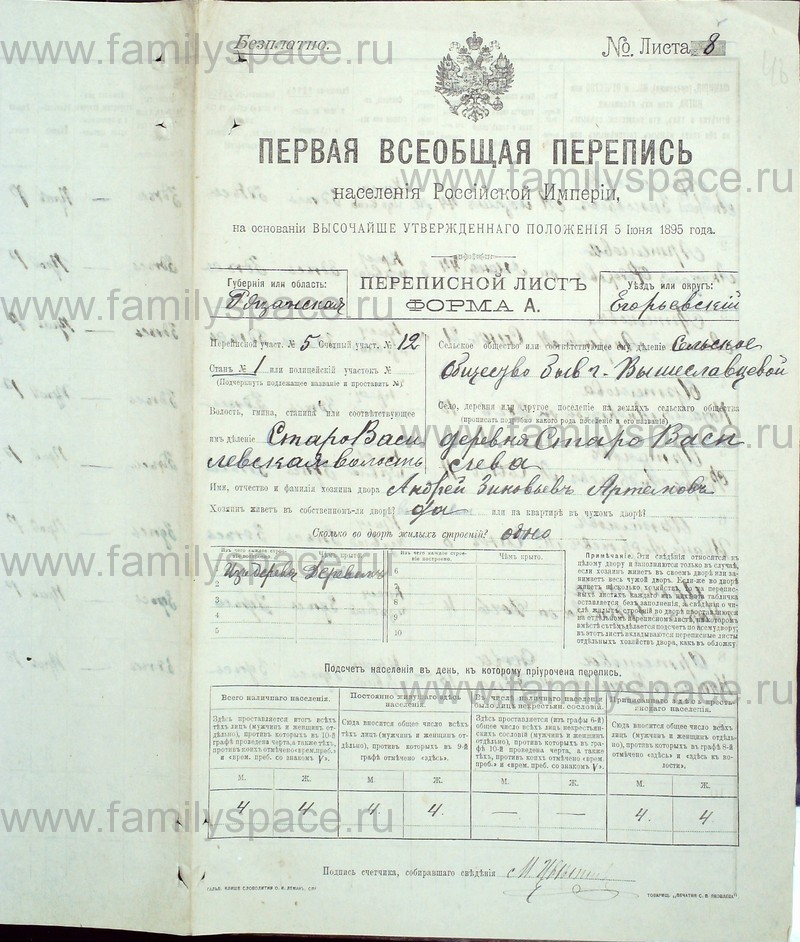 Безплатно.
№ Листа 8
ПЕРВАЯ ВСЕОБЩАЯ ПЕРЕПИСЬ
населенія Россійской Имперіи,
на основаніи ВЫСОЧАЙШЕ УТВЕРЖДЕННАГО ПОЛОЖЕНІЯ 5 Іюня 1895 года.
Губернія или область:
Рязанская
ПЕРЕПИСНОЙ ЛИСТЪ
ФОРМА А.
Уѣздъ или округъ:
Егорьевскій
Переписной участ. № 5 Счетный участ. № 12
Станъ № 1 или полицейскій участокъ №
(Подчеркнуть подлежащее названіе и проставить №)
Волость, гмина, станица или соотвѣтствующее
имъ дѣленіе СтароВаси
левская волость
Сельское общество или соотвѣтствующее ему дѣленіе Сельское
Общество быв г. Вышеславцевой
Село, деревня или другое поселеніе на земляхъ сельскаго общества
(прописать подробно какого рода поселеніе и его названіе)
деревня СтароВаси
лева
Имя, отчество и фамилія хозяина двора Андрей Зиновьевъ Артемовъ
Хозяинъ живетъ въ собственномъ-ли дворѣ? да или на квартирѣ въ чужомъ дворѣ?
Сколько во дворѣ жилыхъ строеній? одно
Изъ чего каждое строеніе построено.
Чѣмъ крыто.
Изъ чего каждое строеніе построено.
Чѣмъ крыто.
Изъ дерева
6
2
7
3
8
4
9
5
10
Примѣчаніе. Эти свѣдѣнія относятся къ
цѣлому двору и заполняются только въ случаѣ,
если хозяинъ живетъ въ своемъ дворѣ или за-
нимаетъ весь чужой дворъ. Если-же во дворѣ
живетъ нѣсколько хозяйствъ, то на
переписныхъ листахъ каждаго изъ нихъ эта табличка
оставляется безъ заполненія, а свѣдѣнія о чи-
слѣ жилыхъ строеній во дворѣ проставляются
на отдѣльномъ переписномъ листѣ, на которомъ
вмѣстѣ съ тѣмъ дѣлается подсчетъ по всему двору;
въ этотъ листъ вкладываются переписные листы
отдѣльныхъ хозяйствъ двора, какъ въ обложку.
Подсчетъ населенія въ день, къ которому пріурочена перепись.
Всего наличнаго населенія.
Постоянно живущаго здѣсь населенія.
Въ числѣ наличнаго населенія было лицъ некрестьян. сословій.
Приписаннаго здѣсь крестьянскаго населенія.
Здѣсь проставляется итогъ всѣхъ
тѣхъ лицъ (мужчинъ и женщинъ от-
дѣльно), противъ которыхъ въ 10-й
графѣ проведена черта, а также тѣхъ,
противъ коихъ отмѣчено «врем. преб.»
и «врем. преб. со знакомъ V».
Сюда вносится общее число всѣхъ
тѣхъ лицъ (мужчинъ и женщинъ от-
дѣльно), противъ которыхъ въ 9-й
графѣ отмѣчено «здѣсь».
Здѣсь проставляется (изъ графы 6-й)
общее число всѣхъ лицъ некрестьян-
скихъ сословій (мужчинъ и женщинъ
отдѣльно), противъ которыхъ въ гра-
фѣ 10-й проведена черта, а также
тѣхъ, противъ коихъ отмѣчено «врем.
преб.» и «врем. преб. со знакомъ V».
Сюда вносится общее число всѣхъ
тѣхъ лицъ (мужчинъ и женщинъ отдѣль-
но), противъ которыхъ въ графѣ 8-й
отмѣчено «здѣсь» и «здѣсь къ во-
лости».
М. Ж. М. Ж. М. Ж. М. Ж.
4 4 4 4. — — 4. 4
Подпись счетчика, собиравшаго свѣдѣнія
www.familyspace.ru